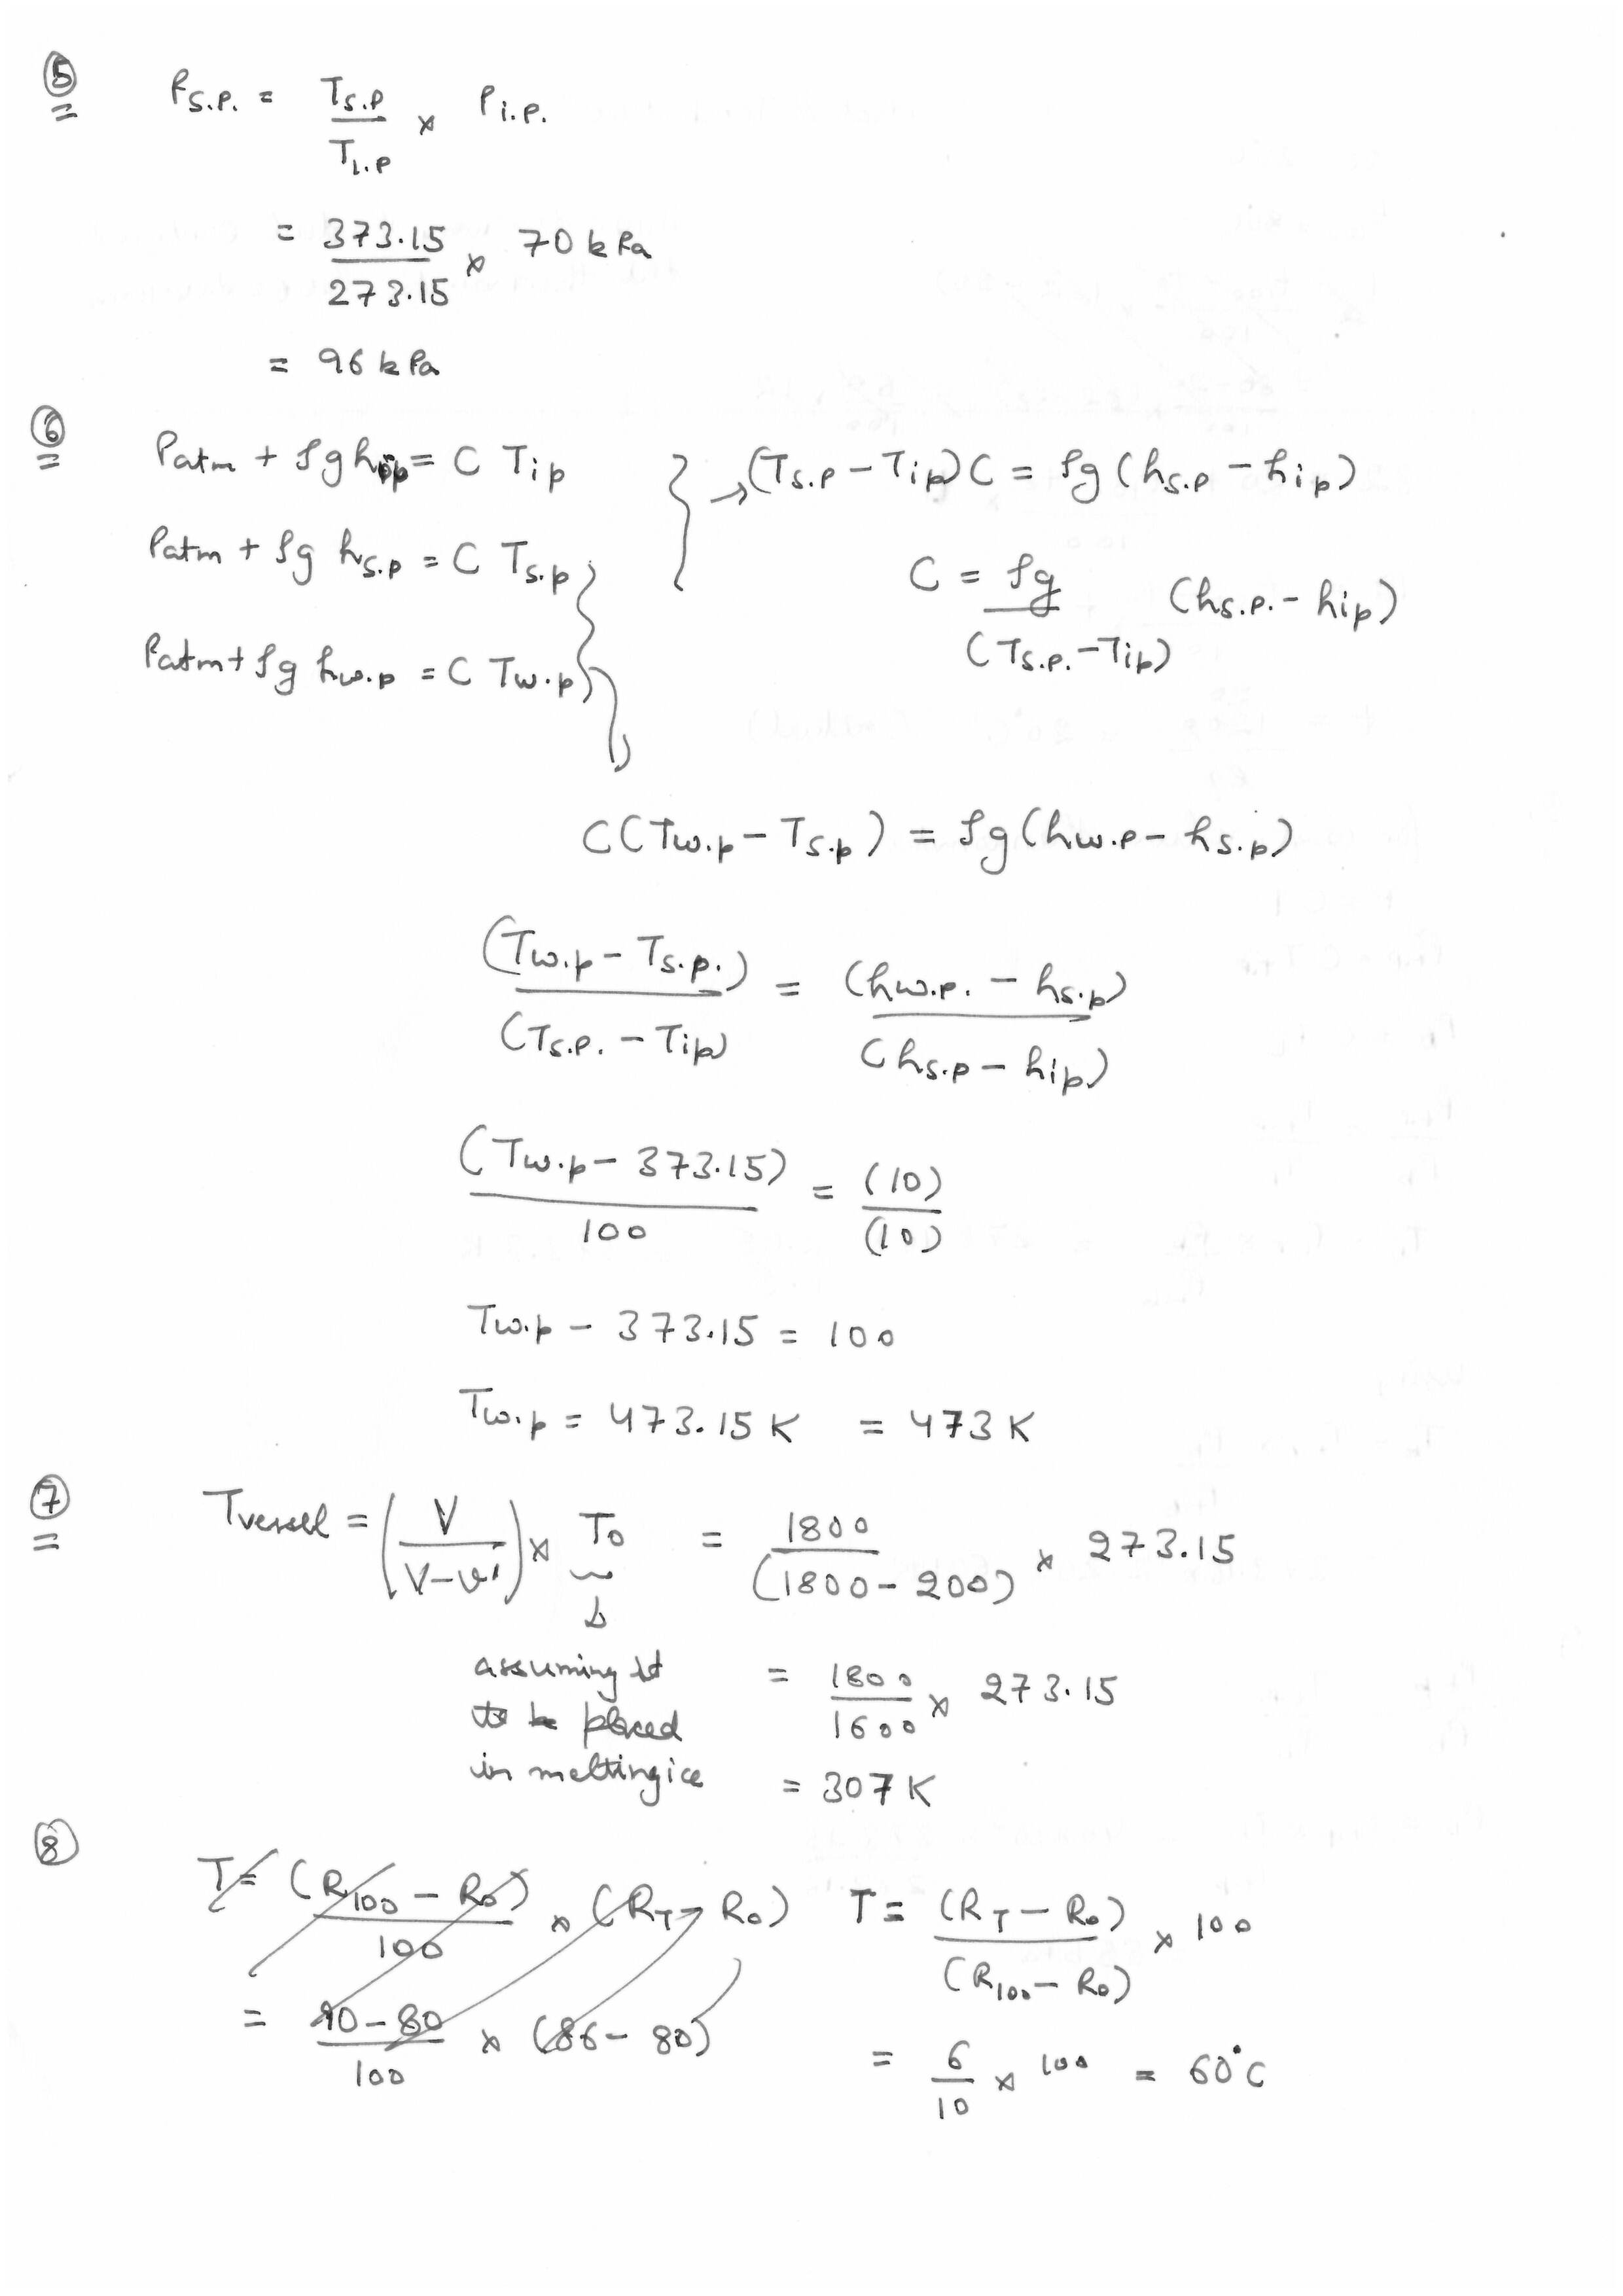 5
P_S.P. = T_S.P / T_I.P × P_i.P.
= 373.15 / 273.15 × 70 kPa
= 96 kPa
6
Patm + ρg h_ip = C T_ip } → (T_S.P − T_ip) C = ρg (h_S.P − h_ip)
Patm + ρg h_S.P = C T_S.p
C = ρg / (T_S.P. − T_ip) (h_S.P. − h_ip)
Patm + ρg h_w.p = C T_w.p
C (T_w.p − T_S.p) = ρg (h_w.p − h_S.p)
(T_w.p − T_S.P.) / (T_S.P. − T_ip) = (h_w.p. − h_S.p) / (h_S.p − h_ip)
(T_w.p − 373.15) / 100 = (10) / (10)
T_w.p − 373.15 = 100
T_w.p = 473.15 K = 473 K
7
T_vessel = (V / V−v') × T_0 = 1800 / (1800 − 200) × 273.15
assuming it
to be placed
in melting ice
= 1800 / 1600 × 273.15
= 307 K
8
T = (R_100 − R_0) / 100 × (R_T − R_0)
= 90 − 80 / 100 × (86 − 80)
T = (R_T − R_0) / (R_100 − R_0) × 100
= 6 / 10 × 100 = 60°C